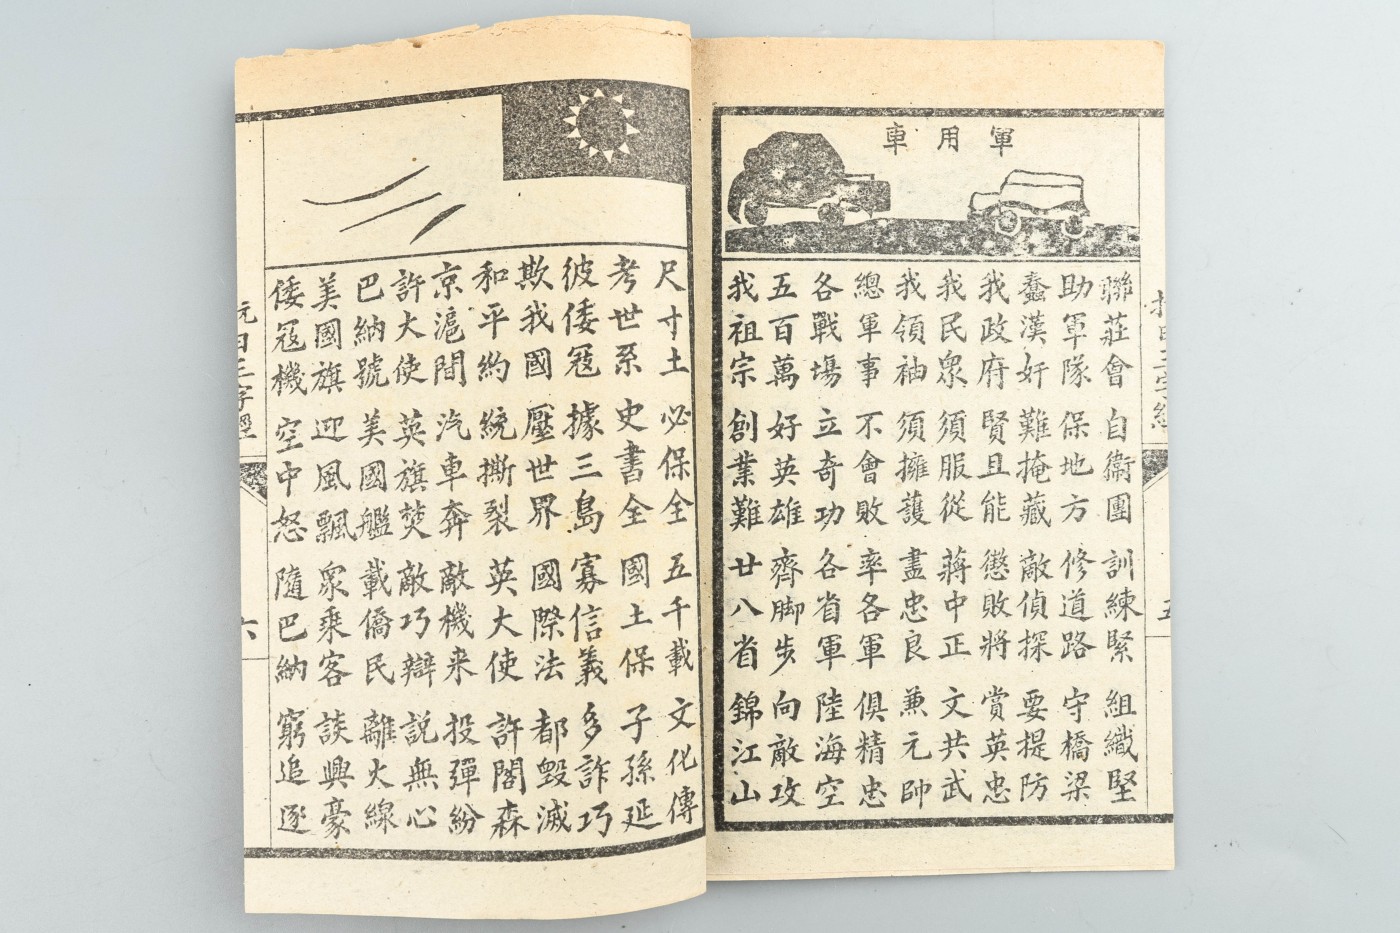 軍用車
聯莊會 自衞團 訓練緊 組織堅
助軍隊 保地方 修道路 守橋梁
蠢漢奸 難掩藏 敵偵探 要提防
我政府 賢且能 懲敗將 賞英忠
我民眾 須服從 蔣中正 文共武
我領袖 須擁護 盡忠良 兼元帥
總軍事 不會敗 率各軍 俱精忠
各戰場 立奇功 各省軍 陸海空
五百萬 好英雄 齊脚步 向敵攻
我祖宗 創業難 廿八省 錦江山
三字經
五
尺寸土 必保全 五千載 文化傳
考世系 史書全 國土保 子孫延
彼倭寇 據三島 寡信義 多詐巧
欺我國 壓世界 國際法 都毀滅
和平約 統撕裂 英大使 許閣森
京滬間 汽車奔 敵機来 投彈紛
許大使 英旗焚 敵巧辯 説無心
巴納號 美國艦 載僑民 離火線
美國旗 迎風飄 眾乘客 談興豪
倭寇機 空中怒 隨巴納 窮追逐
日三字經
六